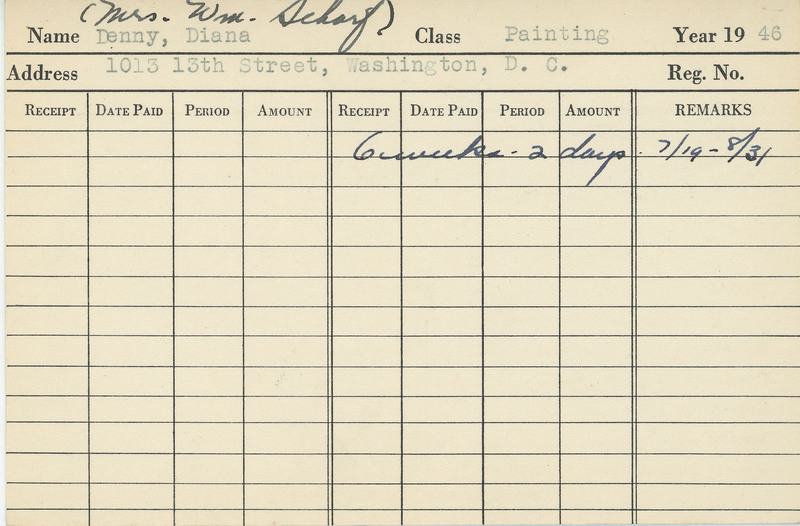 (Mrs. Wm. Scharf)
Name Denny, Diana Class Painting Year 19 46
Address 1013 13th Street, Washington, D. C. Reg. No.
RECEIPT DATE PAID PERIOD AMOUNT RECEIPT DATE PAID PERIOD AMOUNT REMARKS
6 weeks - 2 days. 7/19 - 8/31